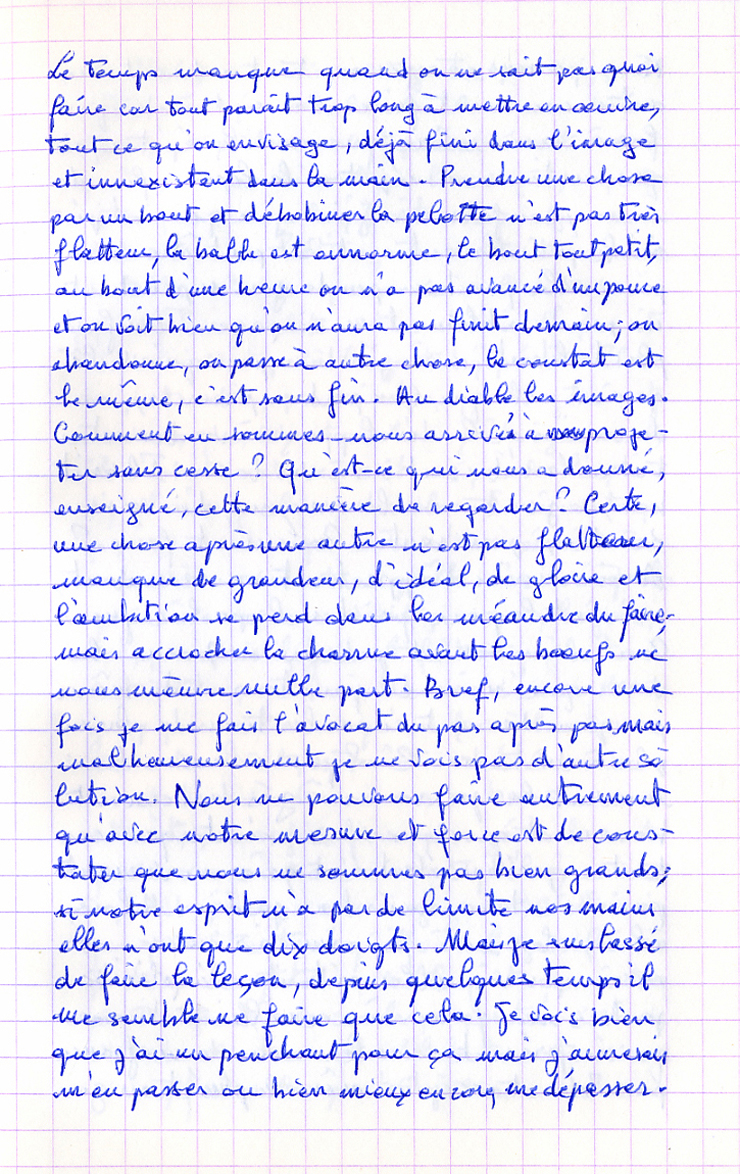 Le temps manque quand on ne sait pas quoi
faire car tout parait trop long à mettre en oeuvre,
tout ce qu'on envisage, déjà fini dans l'image
et innexistent dans la main. Prendre une chose
par un bout et débobiner la pelotte n'est pas très
flatteur, la balle est ennorme, le bout tout petit,
au bout d'une heure on n'a pas avancé d'un pouce
et on voit bien qu'on n'aura pas finit demain; on
abandonne, on passe à autre chose, le constat est
le même, c'est sans fin. Au diable les images.
Comment en sommes-nous arrivés à proje-
ter sans cesse ? Qu'est-ce qui nous a donné,
enseigné, cette manière de regarder ? Certe,
une chose après une autre n'est pas flatteur,
manque de grandeur, d'idéal, de gloire et
l'ambition se perd dans les méandre du faire,
mais accrocher la charrue avant les boeufs ne
nous mène nulle part. Bref, encore une
fois je me fais l'avocat du pas après pas mais
malheureusement je ne vois pas d'autre so
lution. Nous ne pouvons faire autrement
qu'avec notre mesure et force est de cons-
tater que nous ne sommes pas bien grands;
si notre esprit n'a pas de limite nos mains
elles n'ont que dix doigts. Mais je suis lassé
de faire la leçon, depuis quelques temps il
me semble ne faire que cela. Je vois bien
que j'ai un penchant pour ça mais j'aimerais
m'en passer ou bien mieux encore, me dépasser.